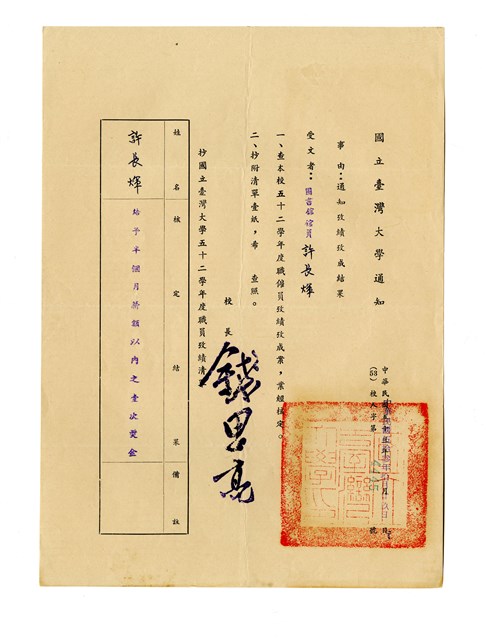 國立臺灣大學通知
中華民國
(53)校人字第 號
事由：通知攷績攷成結果
受文者：圖書館館員 許長煇
一、查本校五十二學年度職僱員攷績攷成業，業經核定。
二、抄附清單壹紙，希 查照。
校長 錢思亮
抄國立臺灣大學五十二學年度職員攷績清
姓名 核定結果 備註
許長煇 給予半個月薪額以內之壹次獎金